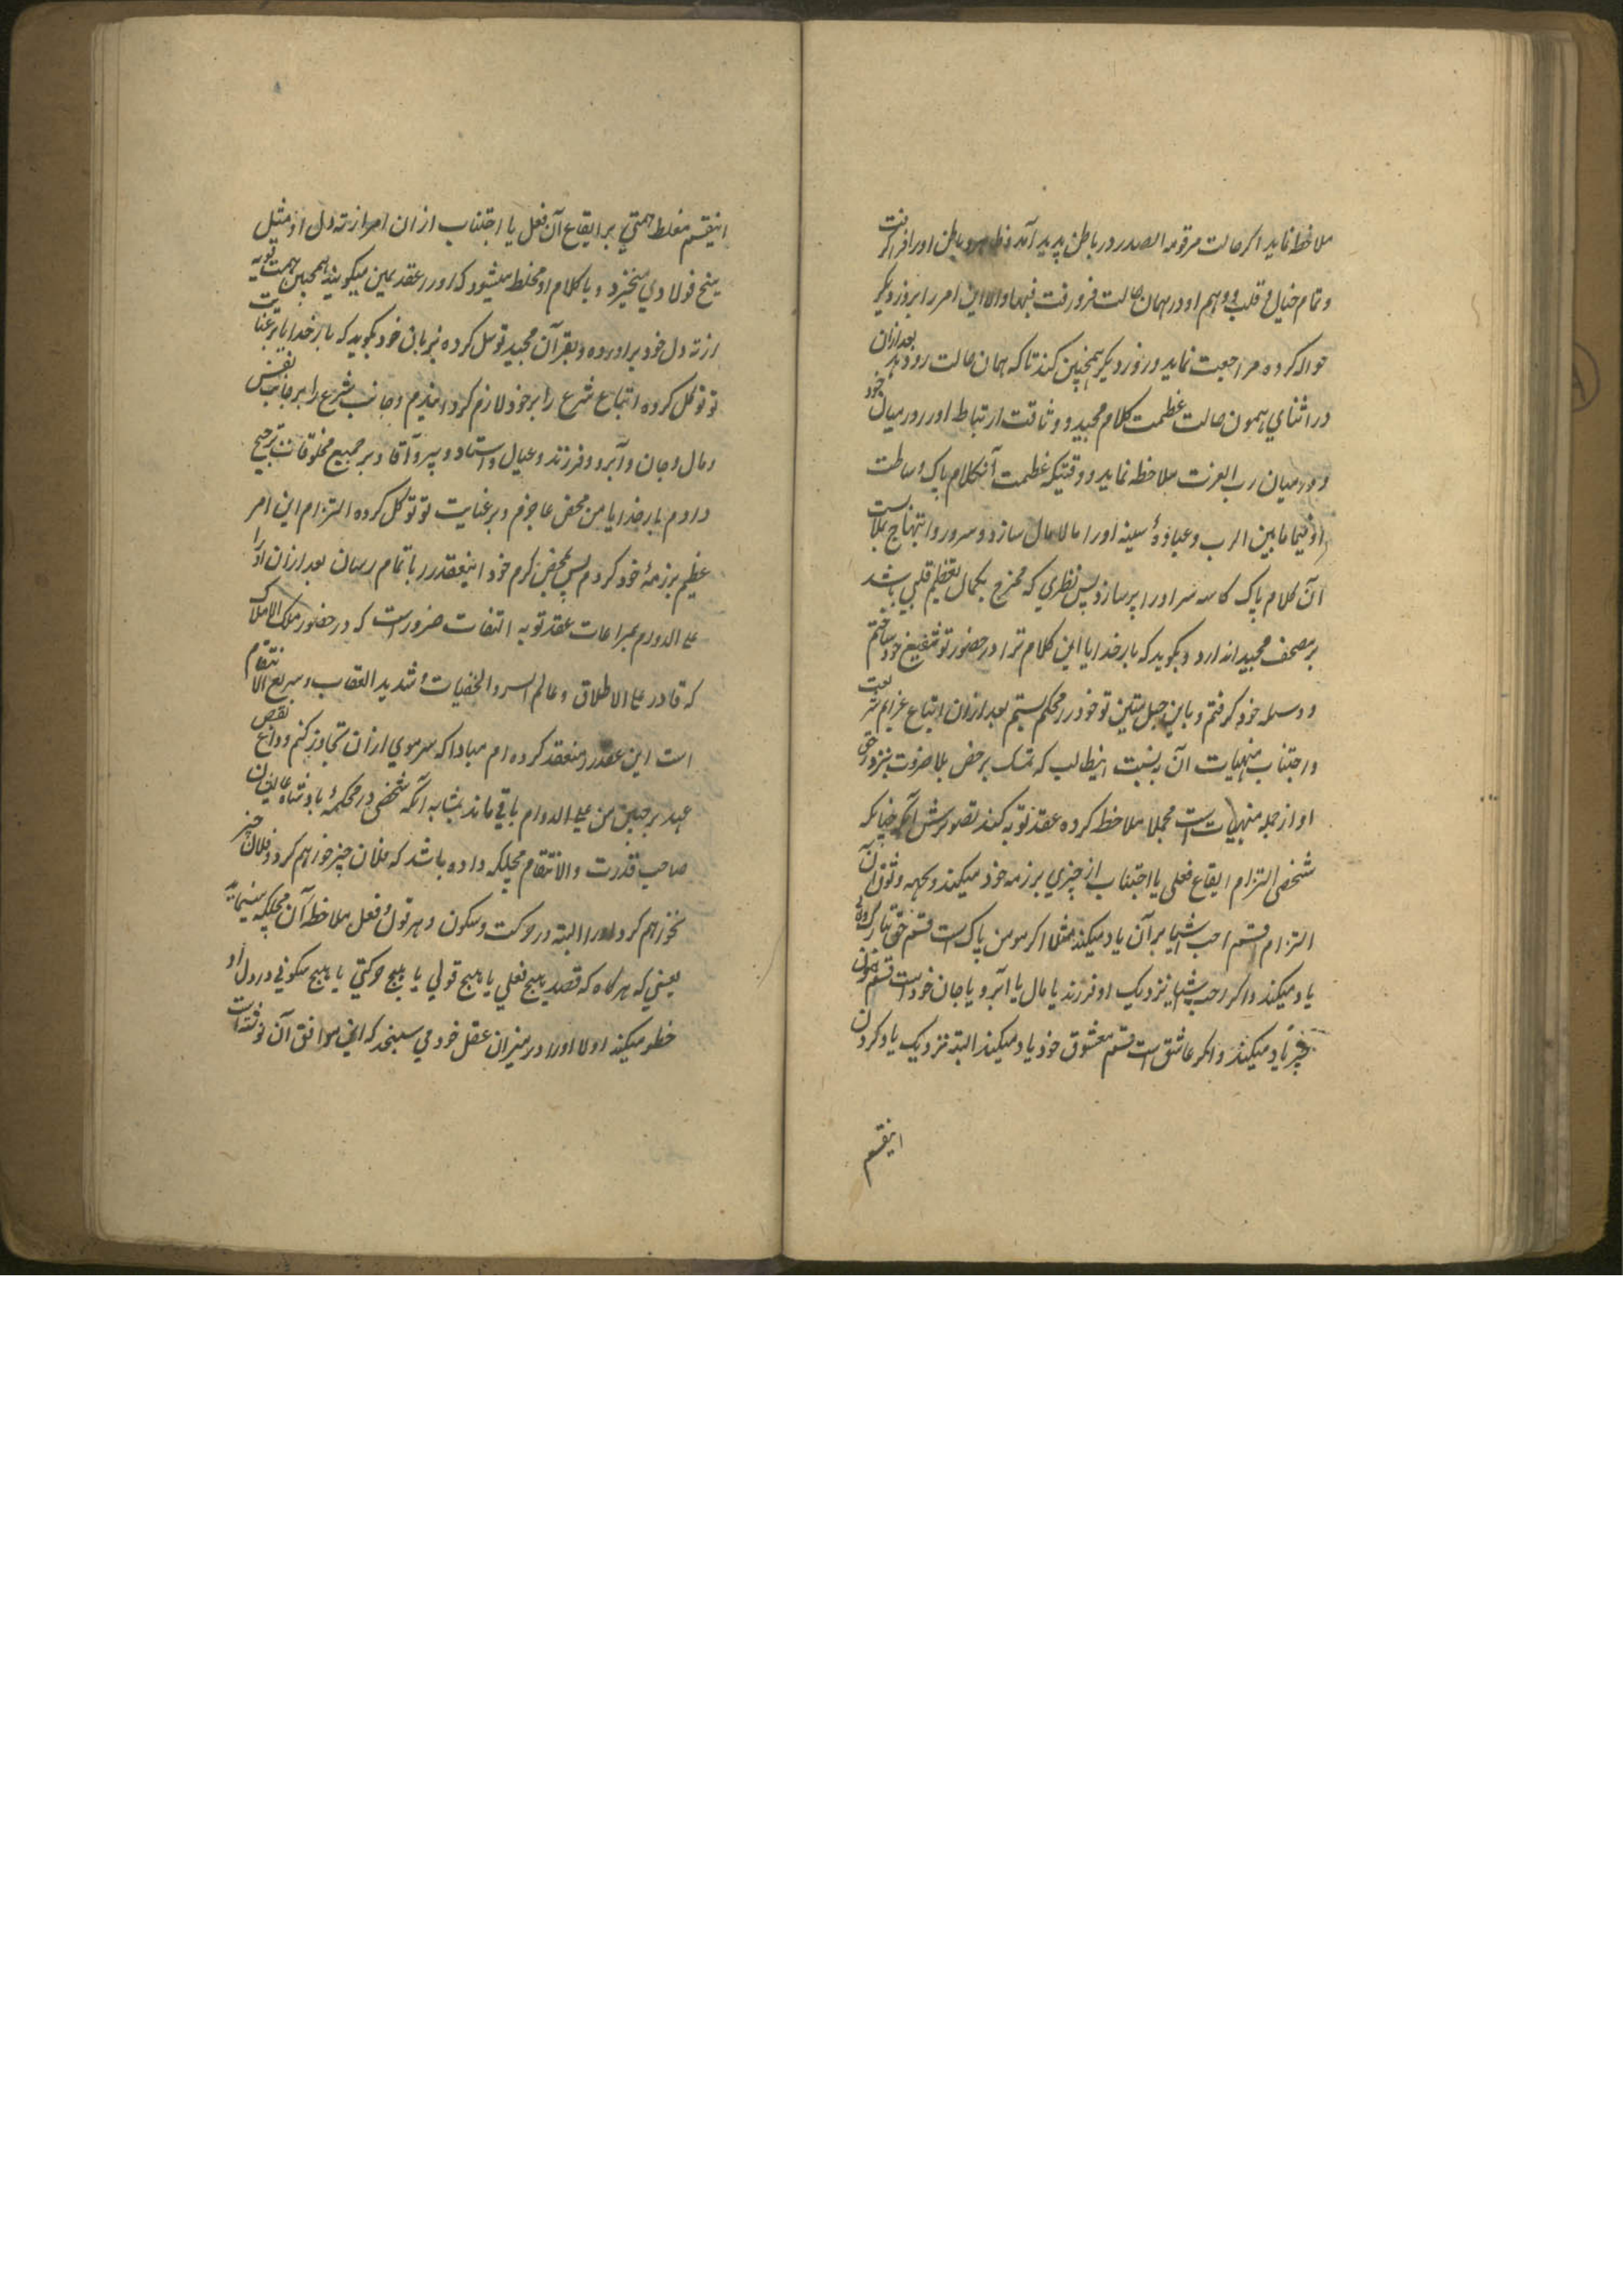 ملاحظه نماید اکر حالت مرقومه الصدر در باطن پدید آمد و ظاهر و باطن او را فرا کرفت
و تمام خیال و قلب و وهم او در همان حالت فرو رفت فبها و الا این امر را بروز دیکر
حواله کرده مراجعت نماید و روز دیکر همچنین کند تا که همان حالت رو دهد بعد ازان
در اثنای همون حالت عظمت کلام مجید و وثاقت ارتباط او را در میان خود
و در میان رب العزت ملاحظه نماید و وقتیکه عظمت آنکلام پاک و ساطت
او فیما مابین الرب و عباده سینه او را مالامال سازد و سرور و ابتهاج بملابست
آن کلام پاک کاسه سر او را پر سازد پس نظری که ممزج بکمال تعظیم قلبی باشد
بر مصحف مجید اندازد و بکوید که بار خدایا این کلام ترا در حضور تو شفیع خود ساختم
و وسیله خود کرفتم و باین حبل متین تو خود را محکم بستم بعد ازان اتباع عزایم شریعت
و اجتناب منهیات آن بنسبت اینطالب که تمسک برخص بلا ضرورت نزد حق
او از جمله منهیات است مجملا ملاحظه کرده عقد توبه کند تصویرش آنکه چنانکه
شخصی التزام ایقاع فعلی یا اجتناب از چیزی بر ذمه خود میکند و بجهه وثوق آن
التزام قسم احب اشیا بر آن یاد میکند مثلا اکر مومن پاک است قسم حق تبارک و تعالی
یاد میکند و اکر احب اشیا نزدیک او فرزند یا مال یا آبرو یا جان خود است قسم همون
چیز یاد میکند و اکر عاشق است قسم معشوق خود یاد میکند البته نزدیک یاد کردن
اینقسم
اینقسم مغلظ همتی بر ایقاع آن فعل یا اجتناب ازان امر از ته دل او مثل
میخ فولادی میخیزد و با کلام او مختلط میشود که او را عقد یمین میکویند همچنین همت توبه
از ته دل خود بر آورده و بقرآن مجید توسل کرده بزبان خود بکوید که بار خدایا بر عنایت
تو توکل کرده اتباع شرع را بر خود لازم کردانیدم و جانب شرع را بر جانب نفس
و مال و جان و آبرو و فرزند و عیال و استاد و پیر و آقا و بر جمیع مخلوقات ترجیح
دادم بار خدایا من محض عاجزم و بر عنایت تو توکل کرده التزام این امر
عظیم بر ذمهٔ خود کردم پس بمحض کرم خود اینعقد را باتمام رسان بعد ازان او را
علی الدوام بمراعات عقد توبه التفات ضرور است که در حضور ملک الاملاک
که قادر علی الاطلاق و عالم السر و الخفیات و شدید العقاب و سریع الانتقام
است این عقد را منعقد کرده ام مبادا که سر موی ازان تجاوز کنم و داغ نقض
عهد بر جبین من علی الدوام باقی ماند بمثابه آنکه شخصی در محکمهٔ بادشاه عالیشان
صاحب قدرت والانتقام مچلکه داده باشد که فلان چیز خواهم کرد و فلان چیز
نخواهم کرد او را البته در حرکت و سکون و هر قول و فعل ملاحظه آن مچلکه مینماید
یعنی که هر کاه که قصد هیچ فعلی یا هیچ قولی یا هیچ حرکتی یا هیچ سکونی در دل او
خطور میکند اولا او را در میزان عقل خود می سنجد که این موافق آن نوشته است